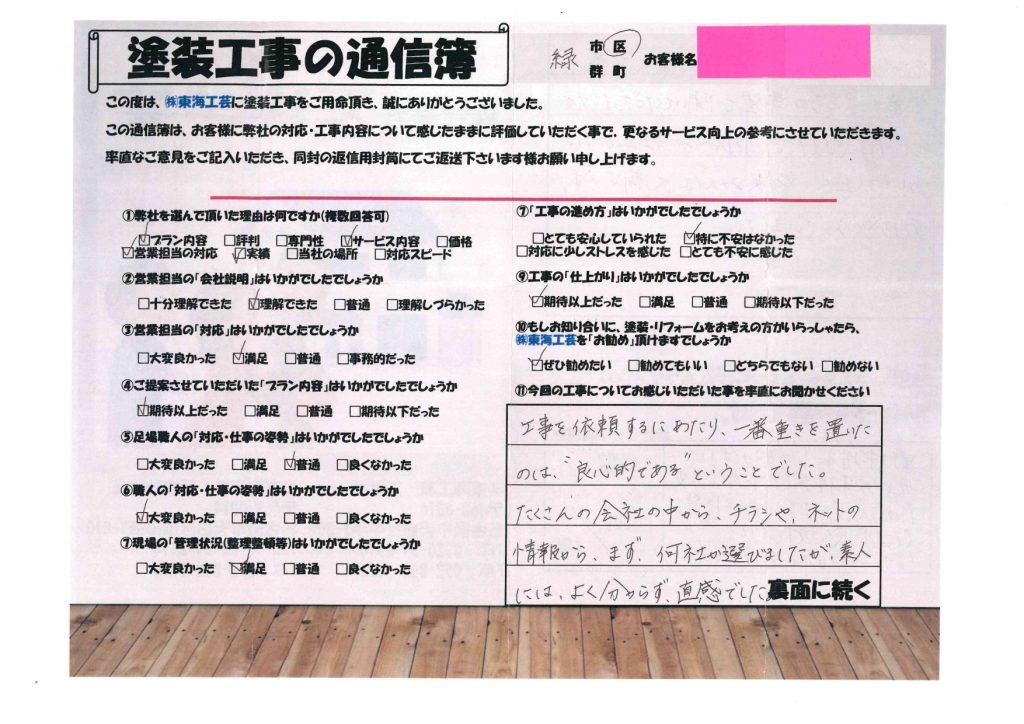 塗装工事の通信簿
緑 市 区
群 町
お客様名
この度は、㈱東海工芸に塗装工事をご用命頂き、誠にありがとうございました。
この通信簿は、お客様に弊社の対応・工事内容について感じたままに評価していただく事で、更なるサービス向上の参考にさせていただきます。
率直なご意見をご記入いただき、同封の返信用封筒にてご返送下さいます様お願い申し上げます。
①弊社を選んで頂いた理由は何ですか(複数回答可)
☑プラン内容 □評判 □専門性 ☑サービス内容 □価格
☑営業担当の対応 ☑実績 □当社の場所 □対応スピード
②営業担当の「会社説明」はいかがでしたでしょうか
□十分理解できた ☑理解できた □普通 □理解しづらかった
③営業担当の「対応」はいかがでしたでしょうか
□大変良かった ☑満足 □普通 □事務的だった
④ご提案させていただいた「プラン内容」はいかがでしたでしょうか
☑期待以上だった □満足 □普通 □期待以下だった
⑤足場職人の「対応・仕事の姿勢」はいかがでしたでしょうか
□大変良かった □満足 ☑普通 □良くなかった
⑥職人の「対応・仕事の姿勢」はいかがでしたでしょうか
☑大変良かった □満足 □普通 □良くなかった
⑦現場の「管理状況(整理整頓等)はいかがでしたでしょうか
□大変良かった ☑満足 □普通 □良くなかった
⑦「工事の進め方」はいかがでしたでしょうか
□とても安心していられた ☑特に不安はなかった
□対応に少しストレスを感じた □とても不安に感じた
⑨工事の「仕上がり」はいかがでしたでしょうか
☑期待以上だった □満足 □普通 □期待以下だった
⑩もしお知り合いに、塗装・リフォームをお考えの方がいらっしゃたら、
㈱東海工芸を「お勧め」頂けますでしょうか
☑ぜひ勧めたい □勧めてもいい □どちらでもない □勧めない
⑪今回の工事についてお感じいただいた事を率直にお聞かせください
工事を依頼するにあたり、一番重きを置いた
のは、"良心的である"ということでした。
たくさんの会社の中から、チラシや、ネットの
情報から、まず、何社か選びましたが、素人
には、よく分からず、直感でした
裏面に続く